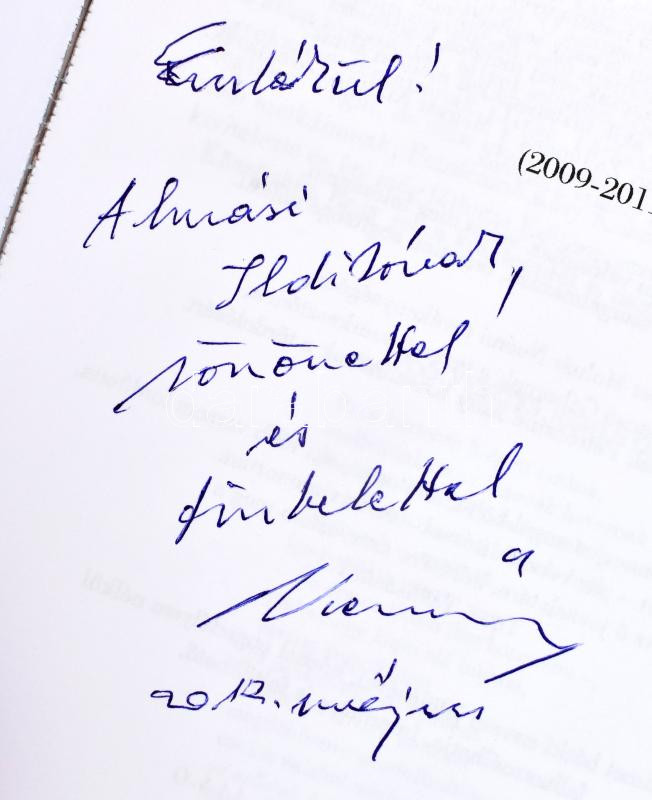 Emlékül!
(2009-201
Almási
Ildikónak,
köszönettel
és
tisztelettel
a
2012. május